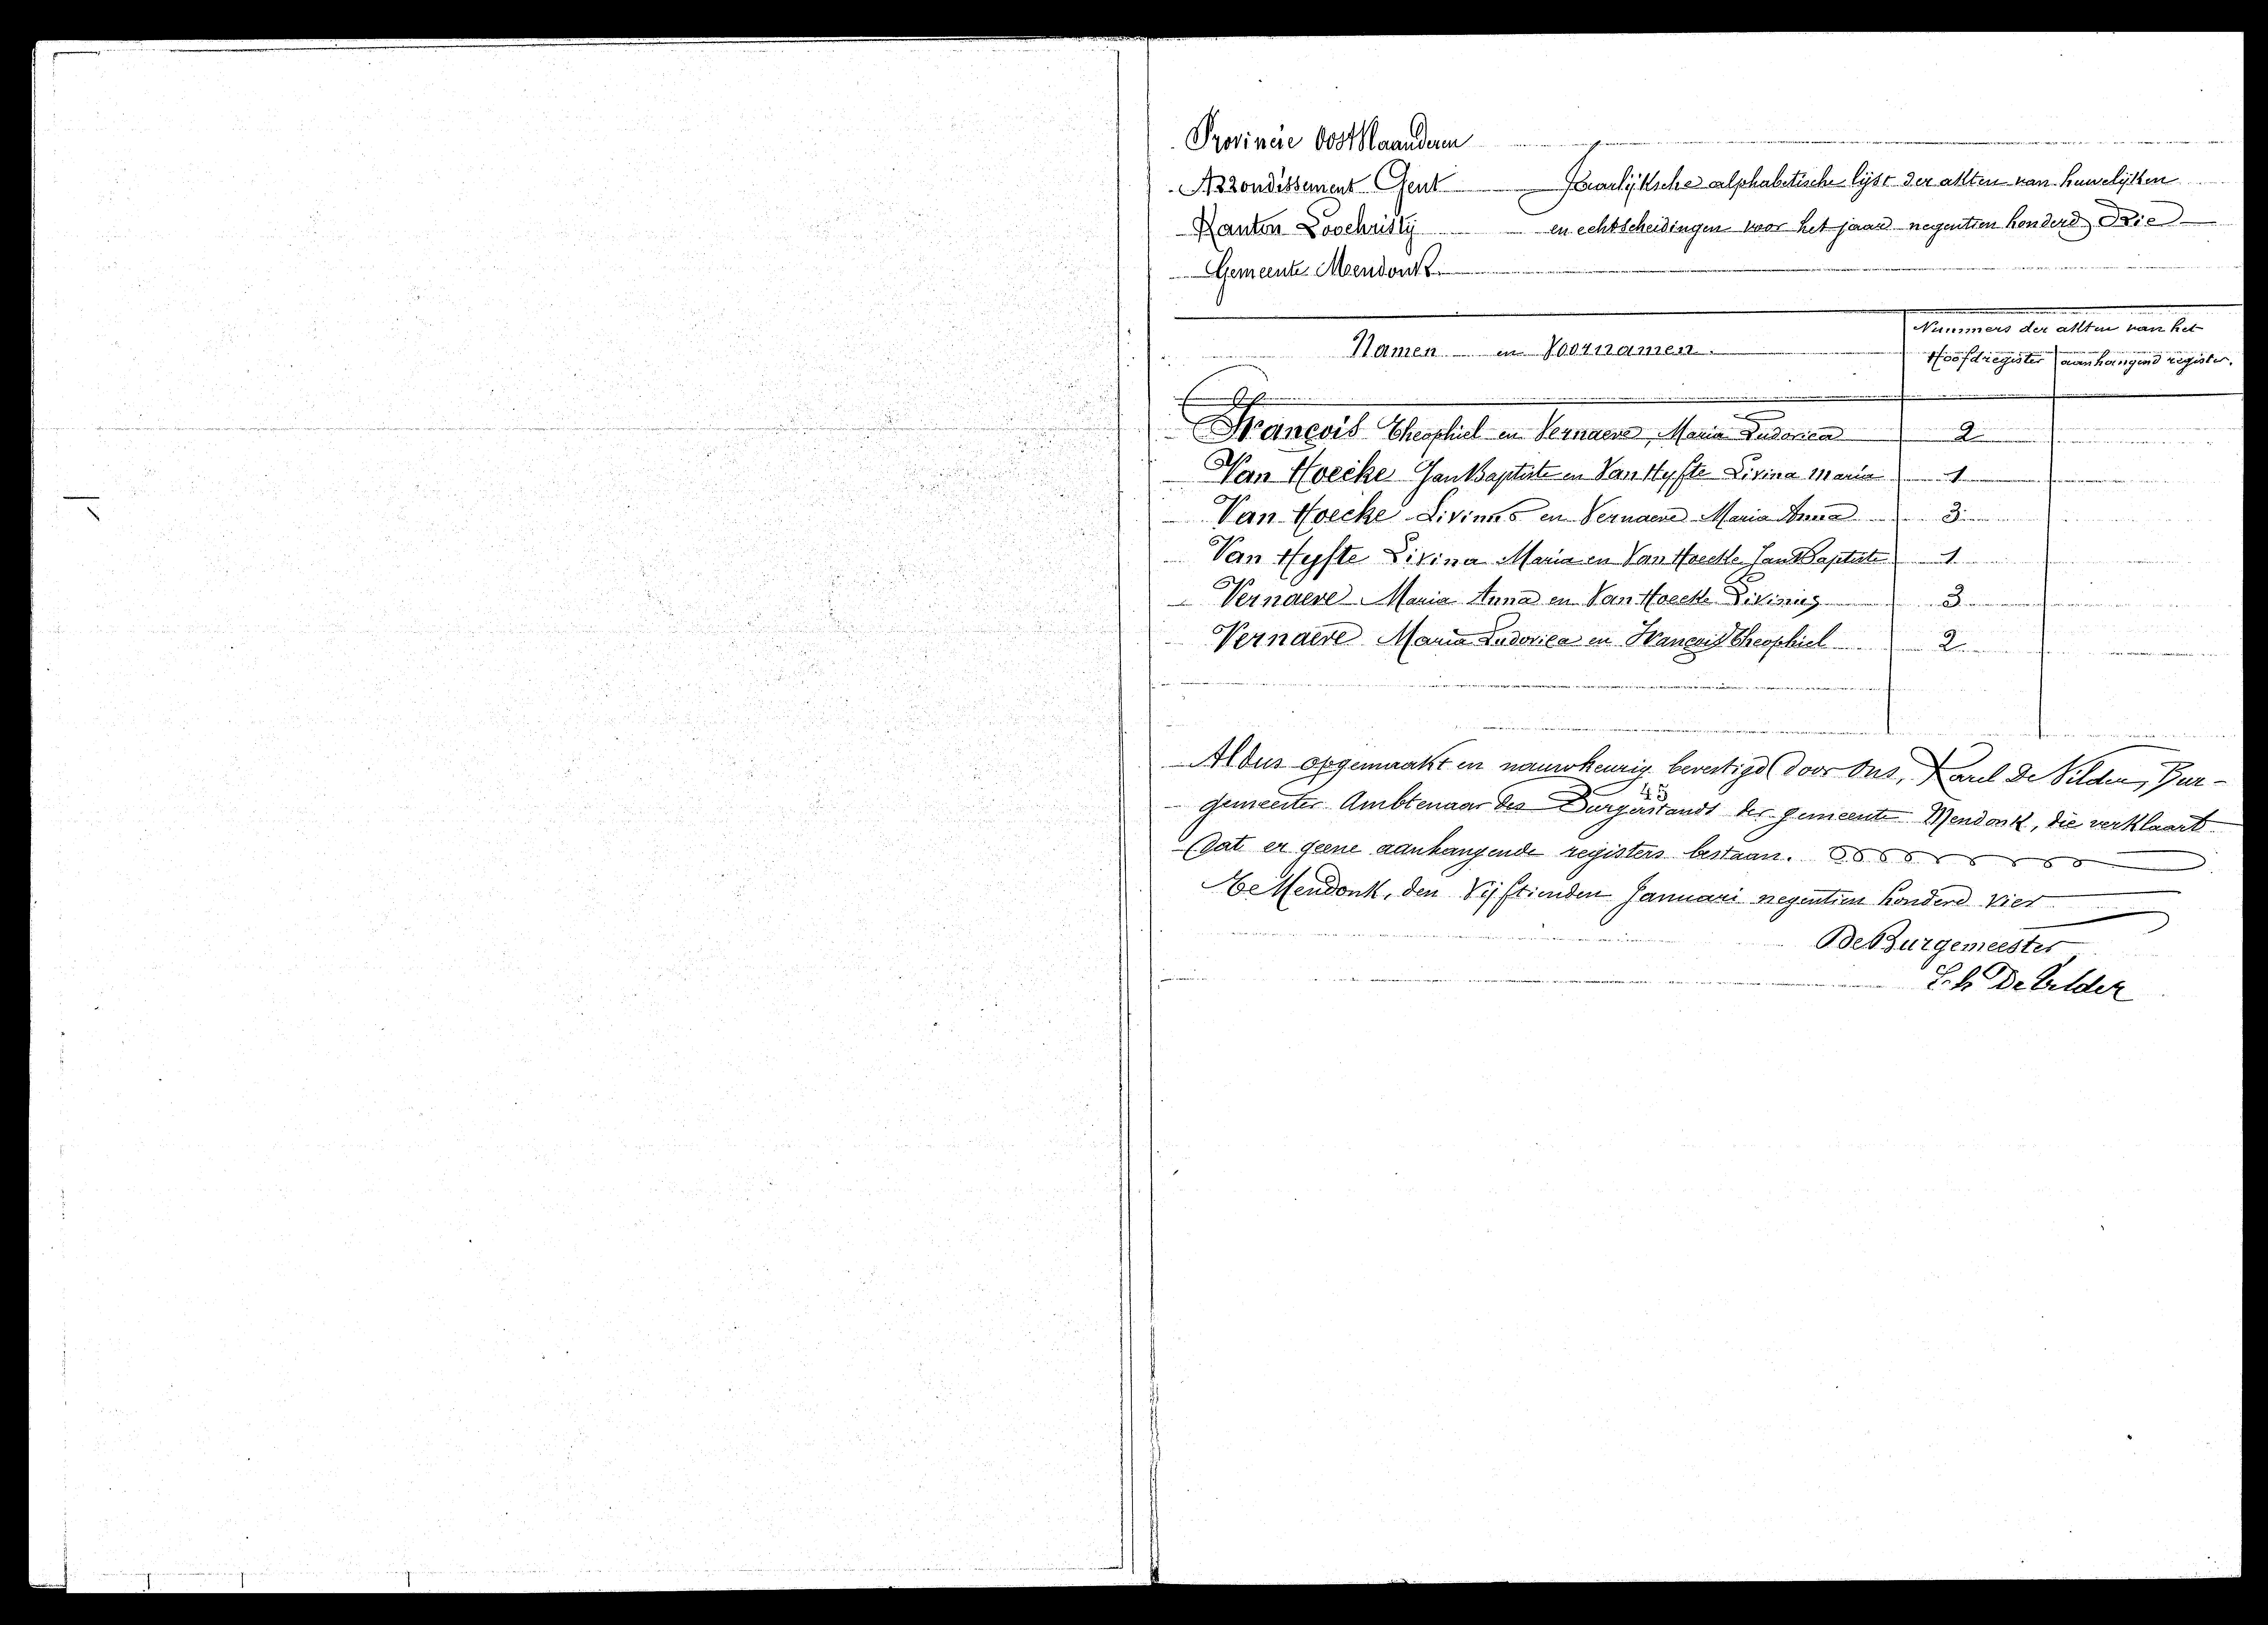 Provincie Oostvlaanderen
Arrondissement Gent Jaarlijksche alphabetische lijst der akten van huwelijken
Kanton Loochristij en echtscheidingen voor het jaar negentien honderd Drie
Gemeente Mendonk
Nummers der akten van het
Namen en Voornamen.
Hoofdregister aanhangend register.
François Theophiel en Vernaeve, Maria Ludovica 2
Van Hoecke Jan Baptiste en Van Hyfte Livina Maria 1
Van Hoecke Livinus en Vernaeve Maria Anna 3
Van Hyfte Livina Maria en Van Hoecke Jan Baptiste 1
Vernaeve Maria Anna en Van Hoecke Livinus 3
Vernaeve Maria Ludovica en François Theophiel 2
Aldus opgemaakt en nauwkeurig bevestigd door Ons, Karel De Vilder, Bur-
gemeester Ambtenaar des Burgerstands der gemeente Mendonk, die verklaart
dat er geene aanhangende registers bestaan.
Te Mendonk, den Vijftienden Januari negentien honderd vier
De Burgemeester
Ch De Vilder